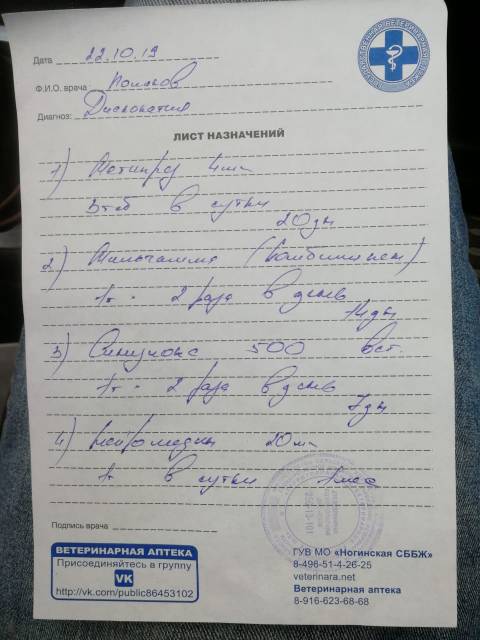 Дата 22.10.19
Ф.И.О. врача Поляков
Диагноз: Дископатия
ЛИСТ НАЗНАЧЕНИЙ
1) Метипред 4мг
3таб в сутки
20дн
2) Мильгамма (Комбилипен)
1т - 2 раза в день
14дн
3) Синулокс 500
1т - 2 раза в день
7дн
4) Нейромедин 20мг
1т в сутки 1мес
Подпись врача
ВЕТЕРИНАРНАЯ АПТЕКА
Присоединяйтесь в группу
VK
http://vk.com/public86453102
ГУВ МО «Ногинская СББЖ»
8-496-51-4-26-25
veterinara.net
Ветеринарная аптека
8-916-623-68-68